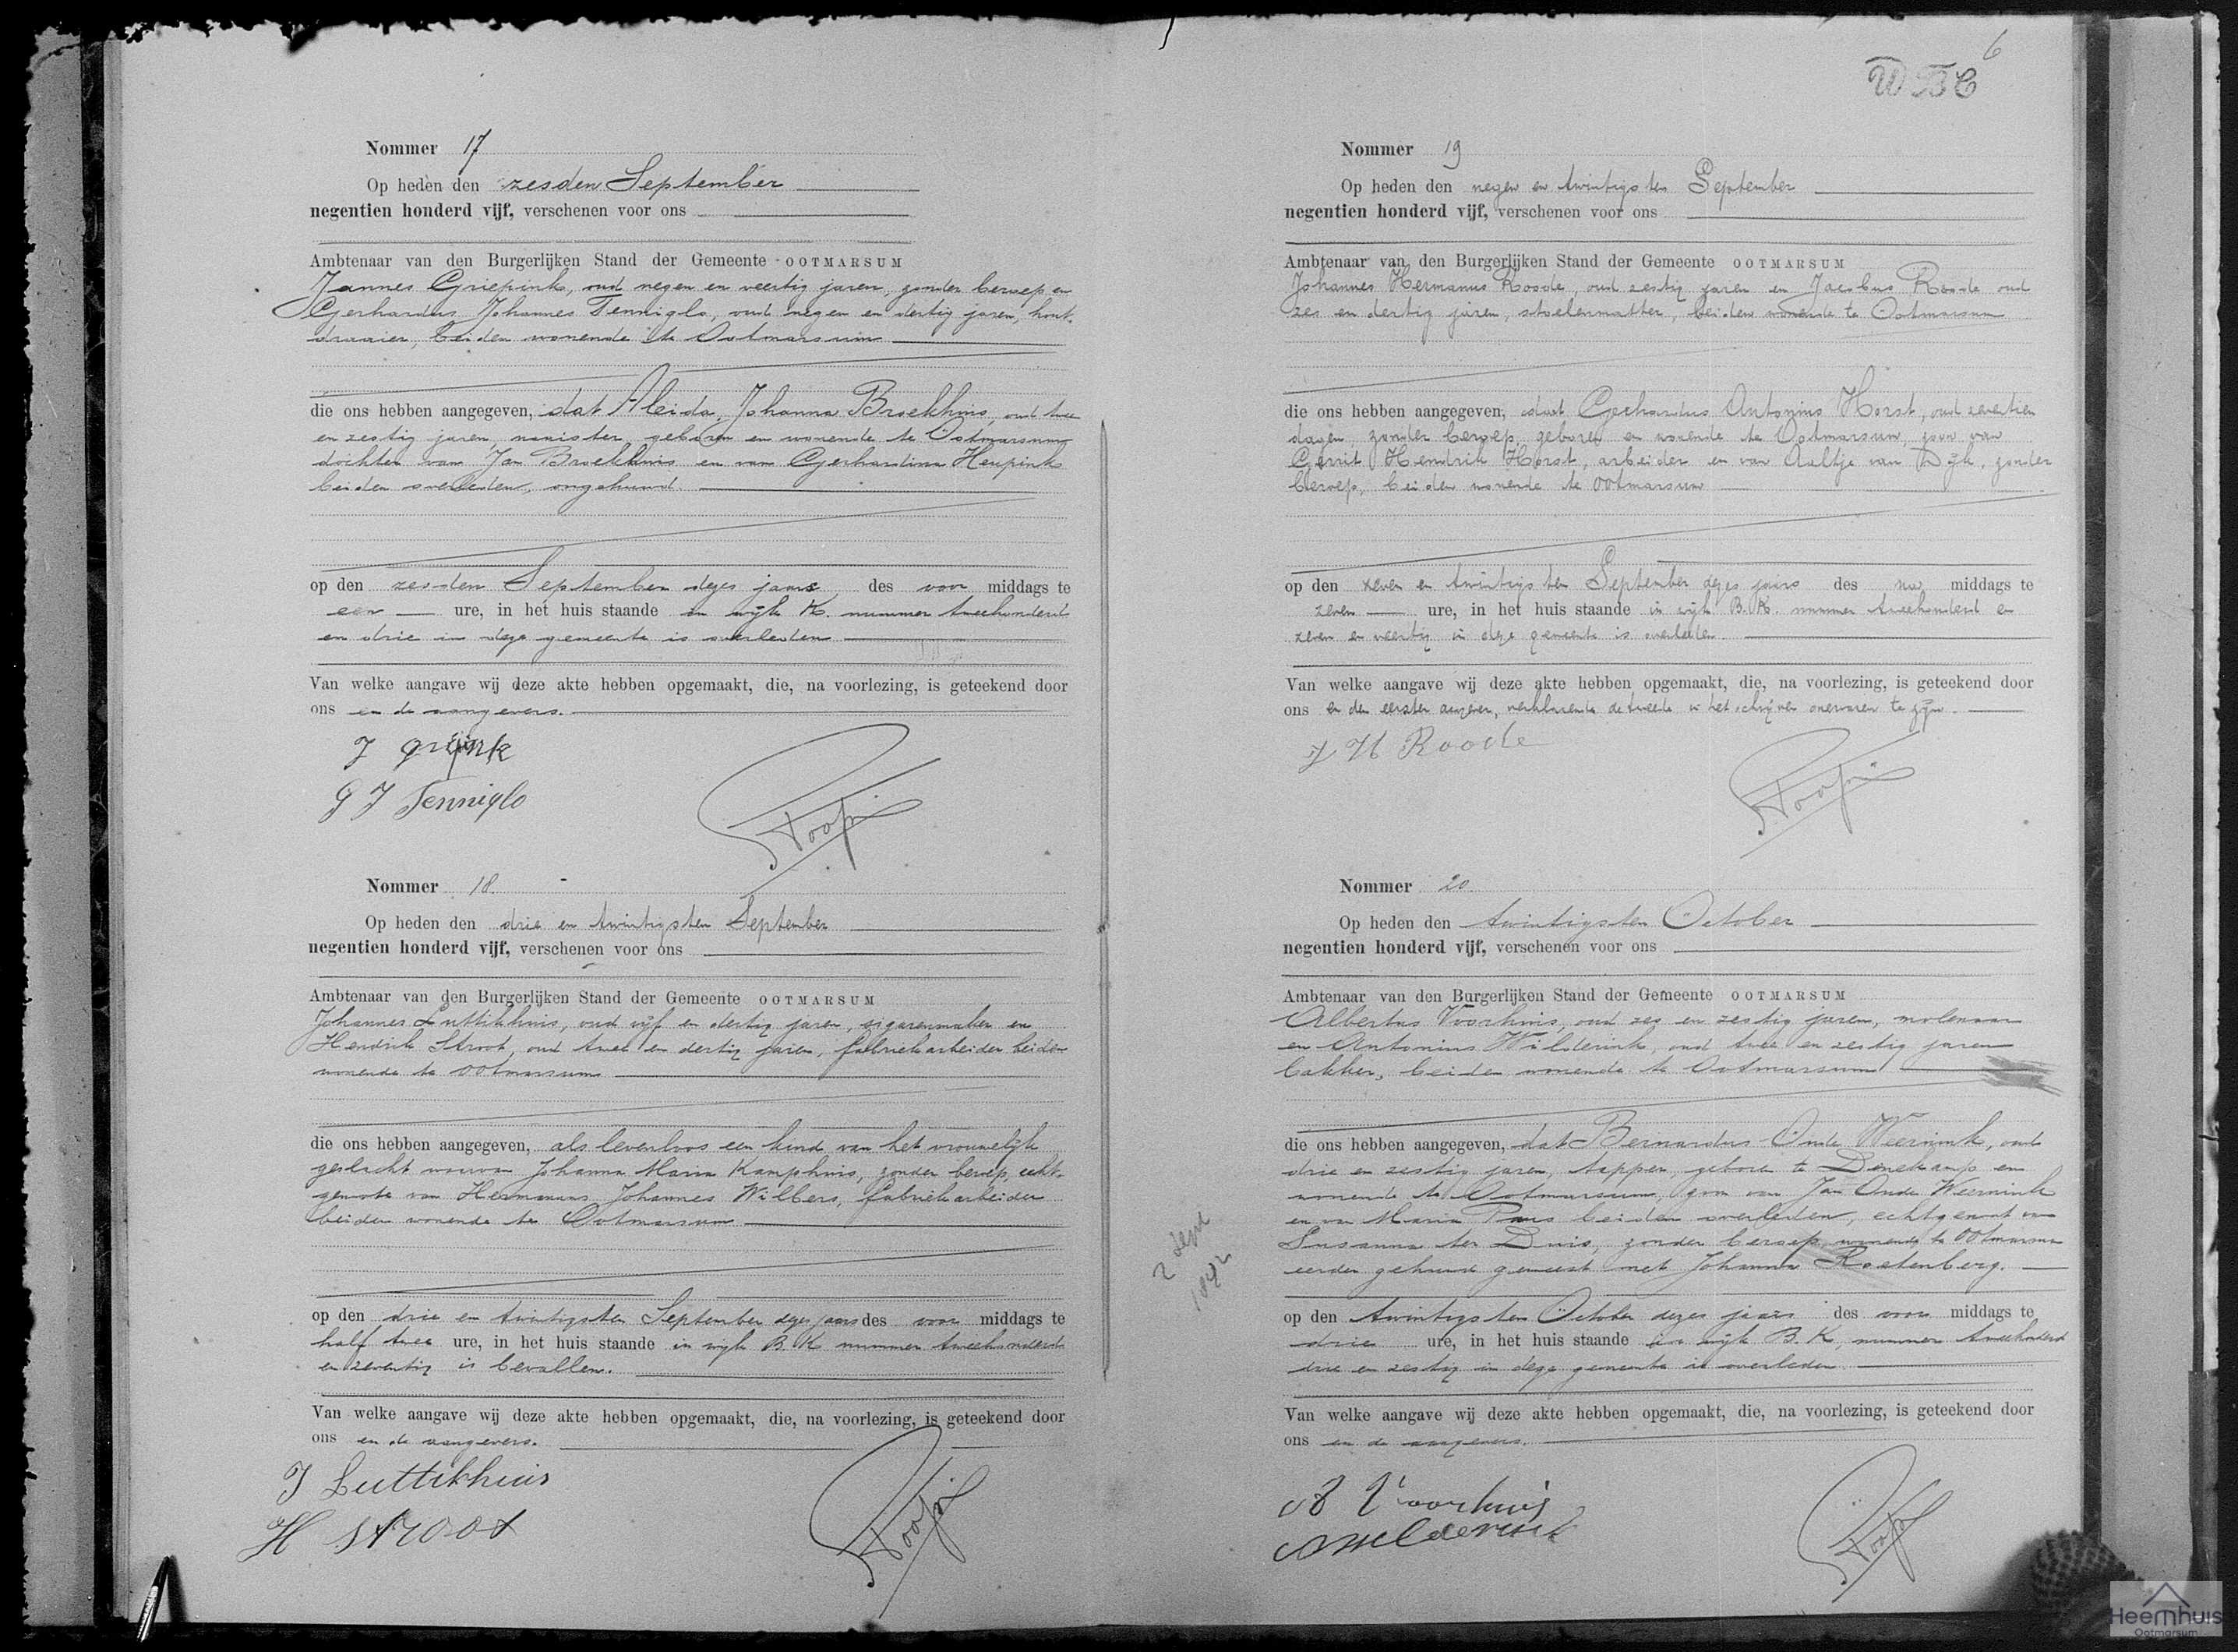 Nommer 17
Op heden den zesden September
negentien honderd vijf, verschenen voor ons
Ambtenaar van den Burgerlijken Stand der Gemeente OOTMARSUM
Jannes Griepink, oud negen en veertig jaren, zonder beroep en
Gerhardus Johannes Tenniglo, oud negen en dertig jaren, hout-
draaier, beiden wonende te Ootmarsum
die ons hebben aangegeven, dat Aleida Johanna Broekhuis, oud twee
en zestig jaren, naaister, geboren en wonende te Ootmarsum
dochter van Jan Broekhuis en van Gerhardina Heupink
beiden overleden, ongehuwd.
op den zesden September dezes jaars des voor middags te
een ure, in het huis staande in wijk K. nummer tweehonderd
en drie in deze gemeente is overleden
Van welke aangave wij deze akte hebben opgemaakt, die, na voorlezing, is geteekend door
ons en de aangevers.
J Griepink
G J Tenniglo
Nommer 18.
Op heden den drie en twintigsten September
negentien honderd vijf, verschenen voor ons
Ambtenaar van den Burgerlijken Stand der Gemeente OOTMARSUM
Johannes Luttikhuis, oud vijf en dertig jaren, sigarenmaker en
Hendrik Stroot, oud twee en dertig jaren, fabriekarbeider beiden
wonende te Ootmarsum
die ons hebben aangegeven, als levenloos een kind van het vrouwelijk
geslacht waarvan Johanna Maria Kamphuis, zonder beroep, echt-
genoote van Hermannus Johannes Wilbers, fabriekarbeider
beiden wonende te Ootmarsum
op den drie en twintigsten September dezes jaars des voor middags te
half twee ure, in het huis staande in wijk B.K. nummer tweehonderd
en zeventig is bevallen.
Van welke aangave wij deze akte hebben opgemaakt, die, na voorlezing, is geteekend door
ons en de aangevers.
J Luttikhuis
H Stroot
6
WBC
Nommer 19
Op heden den negen en twintigsten September
negentien honderd vijf, verschenen voor ons
Ambtenaar van den Burgerlijken Stand der Gemeente OOTMARSUM
Johannes Hermanus Roode, oud zestig jaren en Jacobus Roode oud
zes en dertig jaren, stoelenmatter, beiden wonende te Ootmarsum
die ons hebben aangegeven, dat Gerhardus Antonius Horst, oud zeventien
dagen, zonder beroep, geboren en wonende te Ootmarsum, zoon van
Gerrit Hendrik Horst, arbeider en van Aaltje van Dijk, zonder
beroep, beiden wonende te Ootmarsum
op den zeven en twintigsten September dezes jaars des na middags te
zeven ure, in het huis staande in wijk B.K. nummer tweehonderd en
zeven en veertig in deze gemeente is overleden.
Van welke aangave wij deze akte hebben opgemaakt, die, na voorlezing, is geteekend door
ons en den eersten aangever, verklarende de tweede in het schrijven onervaren te zijn.
J H Roode
Nommer 20.
Op heden den twintigsten October
negentien honderd vijf, verschenen voor ons
Ambtenaar van den Burgerlijken Stand der Gemeente OOTMARSUM
Albertus Voorhuis, oud zes en zestig jaren, molenaar
en Antonius Wilderink, oud twee en zestig jaren
bakker, beiden wonende te Ootmarsum
die ons hebben aangegeven, dat Bernardus Oude Weernink, oud
drie en zestig jaren, tapper, geboren te Denekamp en
wonende te Ootmarsum, zoon van Jan Oude Weernink
en van Maria beiden overleden, echtgenoot van
Susanna ter Duis, zonder beroep, wonende te Ootmarsum
eerder gehuwd geweest met Johanna Rostenberg.
op den twintigsten October dezes jaars des voor middags te
drie ure, in het huis staande in wijk B.K, nummer tweehonderd
drie en zestig in deze gemeente is overleden.
Van welke aangave wij deze akte hebben opgemaakt, die, na voorlezing, is geteekend door
ons en de aangevers.
A Voorhuis
A Wilderink
Heemhuis
Ootmarsum